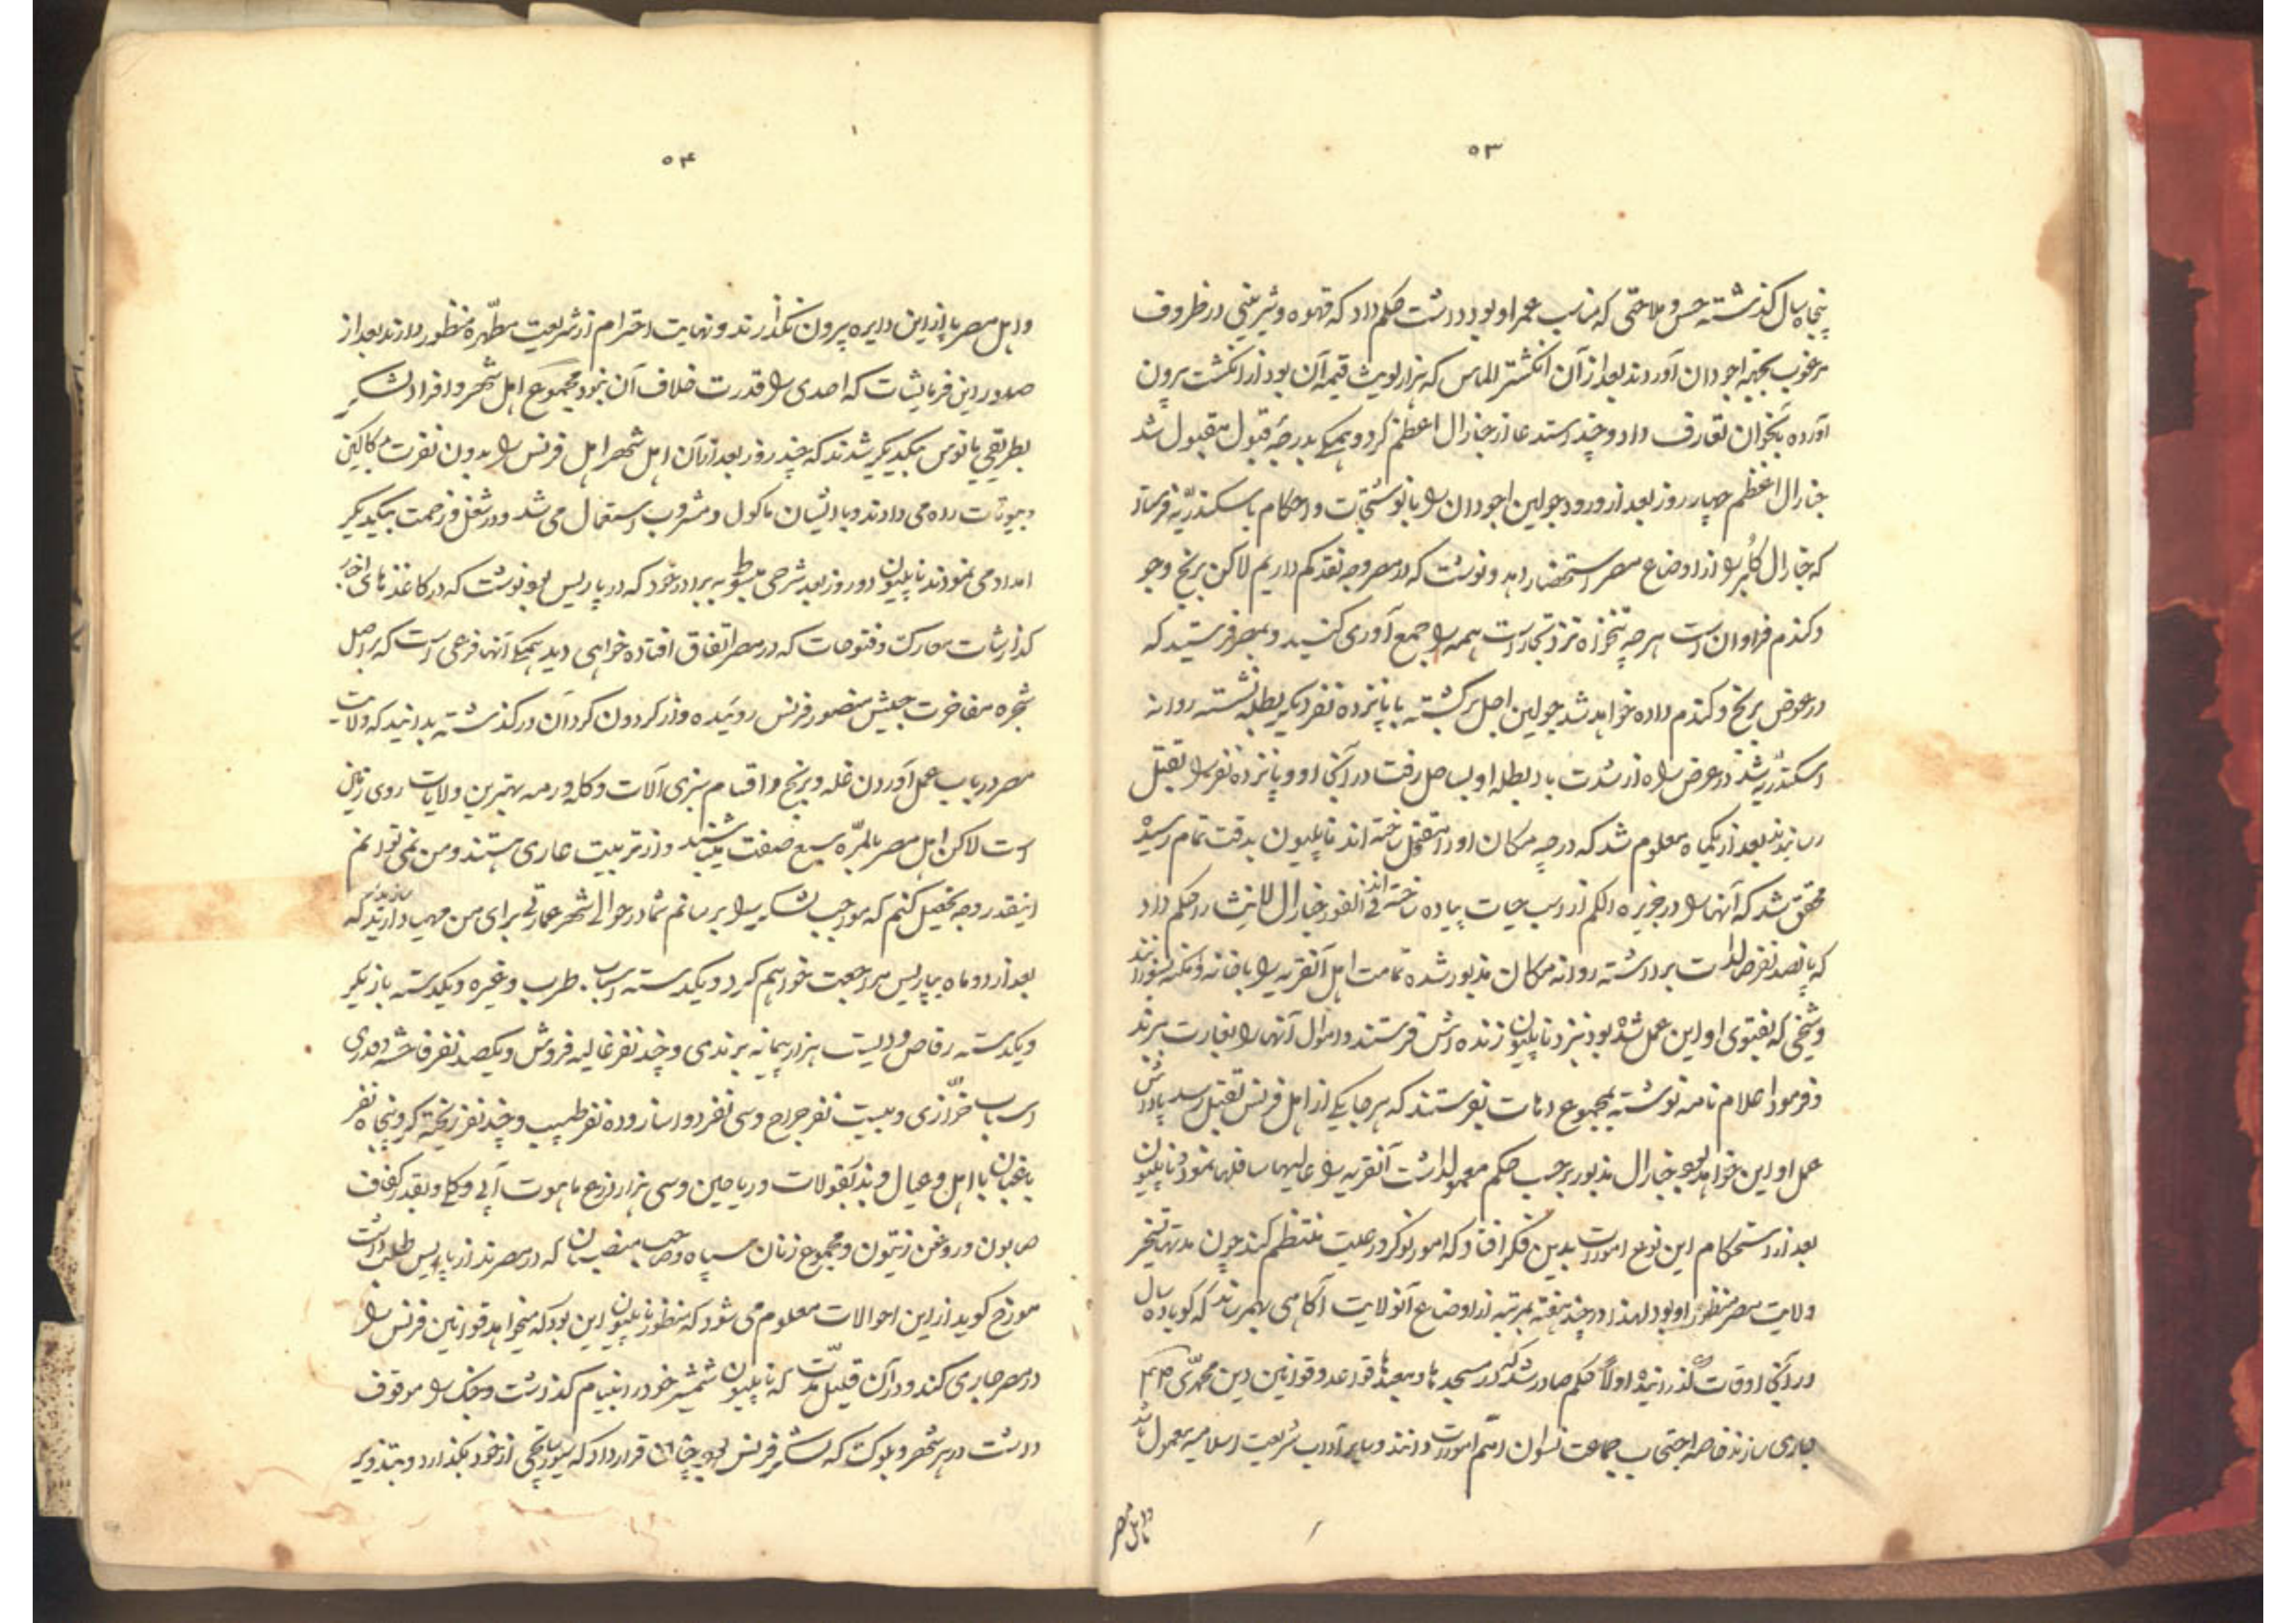 ۵۳
پنجاه سال گذشته حسن و ملاحتی که مناسب عمر او بود داشت حکم داد که قهوه و شیرینی در ظروف
مرغوب بجهة اجودان آوردند بعد از آن انگشتر الماس که هزار لویث قیمة آن بود از انگشت بیرون
آورده بآنجوان تعارف داد و چند استدعا از جنارال اعظم کرد و همکی بدرجۀ قبول مقبول شد
جنارال اعظم چهار روز بعد از ورود جولین اجودان را با نوشتجات و احکام باسکندریّه فرستاد
که جنارال کلبر را از اوضاع مصر استحضار دهد و نوشت که در مصر وجه نقد کم داریم لاکن برنج و جو
و کندم فراوان است هر چه تنخواه نزد تجار است همه را جمع آوری کنید و بمصر فرستید که
در عوض برنج و کندم داده خواهد شد جولین اجل برکشته با پانزده نفر دیکر بطله نشسته روانه
اسکندریّه شدند در عرض راه از شدت باد بطله او بساحل رفت در آنجا او و پانزده نفر را بقتل
رسانیدند بعد از یکماه معلوم شد که در چه مکان او را مقتول ساخته اند ناپلیون بدقت تمام رسیده
محقق شد که آنها را در جزیره الکم از اسب حیات پیاده ساخته اند فی الفور جنارال لانیث را حکم داد
که پانصد نفر صالدات برداشته روانه مکان مذبور شده تمامت اهل آنقریه را با خانه و امکنه بسوزانند
و شیخی که بفتوی او این عمل شده بود نزد ناپلیون زنده اش فرستند و اموال آنها را بغارت برند
و فرمود اعلام نامه نوشته بمجموع دهات بفرستند که هر جا یکی از اهل فرنس بقتل رسد پاداش
عمل او این خواهد بود جنارال مذبور بر حسب حکم معمولداشت آنقریه را عالیها سافلها نمود ناپلیون
بعد از استحکام این نوع امورات بدین فکر افتاد که امور نوکر و رعیت منتظم کند چون مدتها تسخیر
ولایت مصر منظور او بود لهذا در چند هفته بمرتبه از اوضاع آنولایت آکاهی بهمرساند که کویا ده سال
در آنجا اوقات گذرانیده اولاً حکم صادر شد که در مسجدها و معبدها قواعد و قوانین دین محمّدی
جاری سازند خاصه اجتناب جماعت نسوان اهم امورات دانند و سایر آداب شریعت اسلامیه معمول باشد
و اهل مصر
۵۴
و اهل مصر پا از این دایره بیرون نگذارند و نهایت احترام از شریعت مطّهره منظور دارند بعد از
صدور این فرمایشات که احدی را قدرت خلاف آن نبود مجموع اهل شهر و افراد لشکر
بطریقی مانوس بیکدیکر شدند که چند روز بعد از آن اهل شهر اهل فرنس را بدون نفرت
و بیوتات راه می دادند و با ایشان ماکول و مشروب استعمال می شد و در شغل و زحمت بیکدیکر
امداد می نمودند ناپلیون دو روز بعد شرحی مبسوط به برادر خود که در پاریس بود نوشت که در کاغذهای اخبار
کذارشات معارک و فتوحات که در مصر اتفاق افتاده خواهی دید همکی آنها فرعی است که بر اصل
شجره مفاخرت جیش منصور فرنس روئیده و از کردون کردان در کذشته بدانید که ولایت
مصر در باب عمل آوردن غله و برنج و اقسام سبزی آلات و کله و رمه بهترین ولایات روی زمین
است لاکن اهل مصر بالمرّه سبع صفت میباشند و از تربیت عاری هستند و من نمی توانم
اینقدر وجه تحصیل کنم که مواجب لشکر را برسانم شما در حوالی شهر عمارتی برای من مهیا دارید که
بعد از دو ماه بپاریس مراجعت خواهم کرد و یکدسته اسباب طرب و غیره و یکدسته بازیکر
و یکدسته رقاص و دویست هزار پیمانه برندی و چند نفر غالیه فروش و یکصد نفر فاحشه و قدری
اسباب خرّازی و بیست نفر جراح و سی نفر دواساز و ده نفر طبیب و چند نفر ریخته کر و پنجاه نفر
باغبان با اهل و عیال و بذر بقولات و ریاحین و سی هزار ذرع ماهوت آبی و کلی و بقدر کفاف
صابون و روغن زیتون و مجموع زنان سپاه و صاحب منصبان که در مصرند از پاریس طلب داشت
مورخ کوید از این احوالات معلوم می شود که منظور ناپلیون این بود که میخواهد قوانین فرنس را
در مصر جاری کند و در آن قلیل مدّت که ناپلیون شمشیر خود در انبیام کذاشت و جنک را موقوف
داشت در هر شهر و بلوک که لشکر فرنس بود چنان قرار داد که از خود بکذارد و